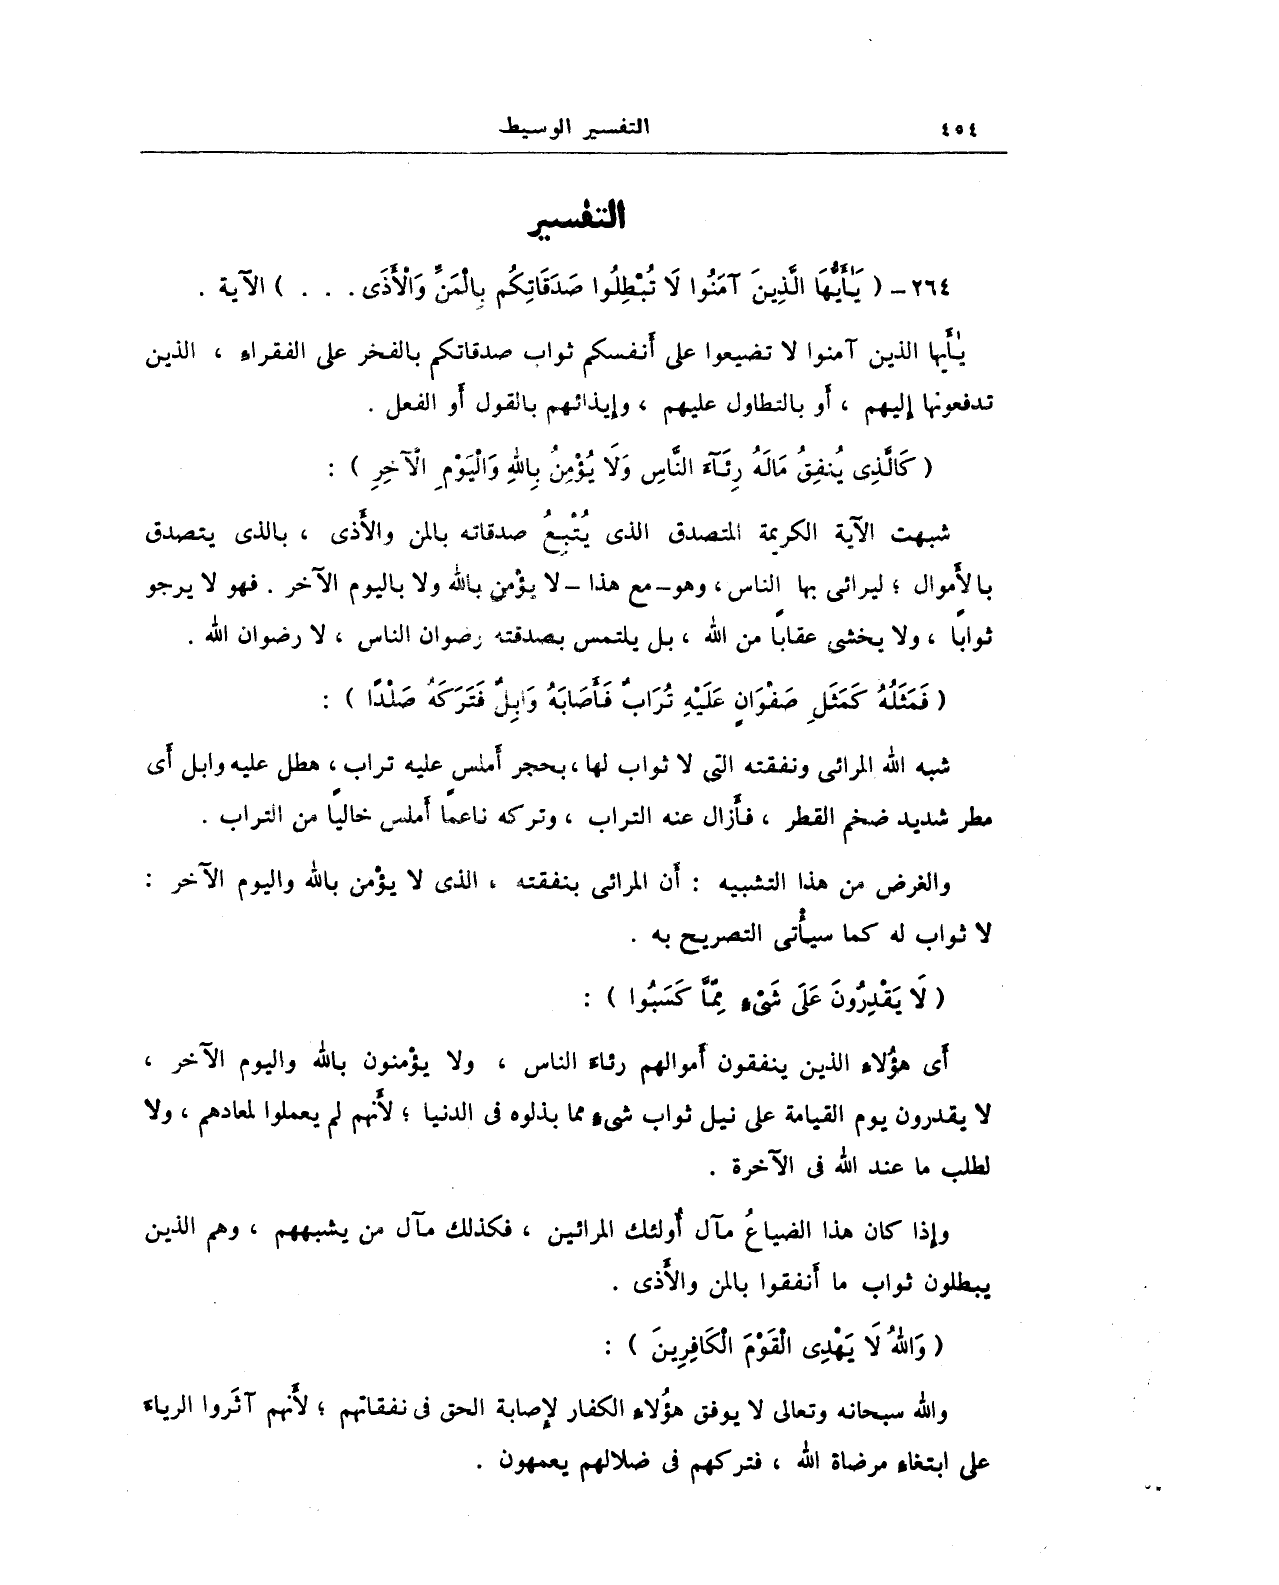 ٤٥٤ التفسير الوسيط
التفسير
٢٦٤ - ( يَٰأَيُّهَا الَّذِينَ آمَنُوا لَا تُبْطِلُوا صَدَقَاتِكُم بِالْمَنِّ وَالْأَذَى . . . ) الآية .
يٰأيها الذين آمنوا لا تضيعوا على أنفسكم ثواب صدقاتكم بالفخر على الفقراء ، الذين
تدفعونها إليهم ، أو بالتطاول عليهم ، وإيذائهم بالقول أو الفعل .
( كَالَّذِى يُنفِقُ مَالَهُ رِئَآءَ النَّاسِ وَلَا يُؤْمِنُ بِاللهِ وَالْيَوْمِ الْآخِرِ ) :
شبهت الآية الكريمة المتصدق الذى يُتْبِعُ صدقاته بالمن والأذى ، بالذى يتصدق
بالأموال ؛ ليرائى بها الناس ، وهو - مع هذا - لا يؤمن بالله ولا باليوم الآخر . فهو لا يرجو
ثوابًا ، ولا يخشى عقابًا من الله ، بل يلتمس بصدقته رضوان الناس ، لا رضوان الله .
( فَمَثَلُهُ كَمَثَلِ صَفْوَانٍ عَلَيْهِ تُرَابٌ فَأَصَابَهُ وَابِلٌ فَتَرَكَهُ صَلْدًا ) :
شبه الله المرائى ونفقته التى لا ثواب لها ، بحجر أملس عليه تراب ، هطل عليه وابل أى
مطر شديد ضخم القطر ، فأزال عنه التراب ، وتركه ناعمًا أملس خاليًا من التراب .
والغرض من هذا التشبيه : أن المرائى بنفقته ، الذى لا يؤمن بالله واليوم الآخر :
لا ثواب له كما سيأتى التصريح به .
( لَا يَقْدِرُونَ عَلَى شَىْءٍ مِّمَّا كَسَبُوا ) :
أى هؤلاء الذين ينفقون أموالهم رئاء الناس ، ولا يؤمنون بالله واليوم الآخر ،
لا يقدرون يوم القيامة على نيل ثواب شىء مما بذلوه فى الدنيا ؛ لأنهم لم يعملوا لمعادهم ، ولا
لطلب ما عند الله فى الآخرة .
وإذا كان هذا الضياعُ مآل أُولئك المرائين ، فكذلك مآل من يشبههم ، وهم الذين
يبطلون ثواب ما أنفقوا بالمن والأذى .
( وَاللهُ لَا يَهْدِى الْقَوْمَ الْكَافِرِينَ ) :
والله سبحانه وتعالى لا يوفق هؤُلاء الكفار لإصابة الحق فى نفقاتهم ؛ لأنهم آثَروا الرياء
على ابتغاء مرضاة الله ، فتركهم فى ضلالهم يعمهون .